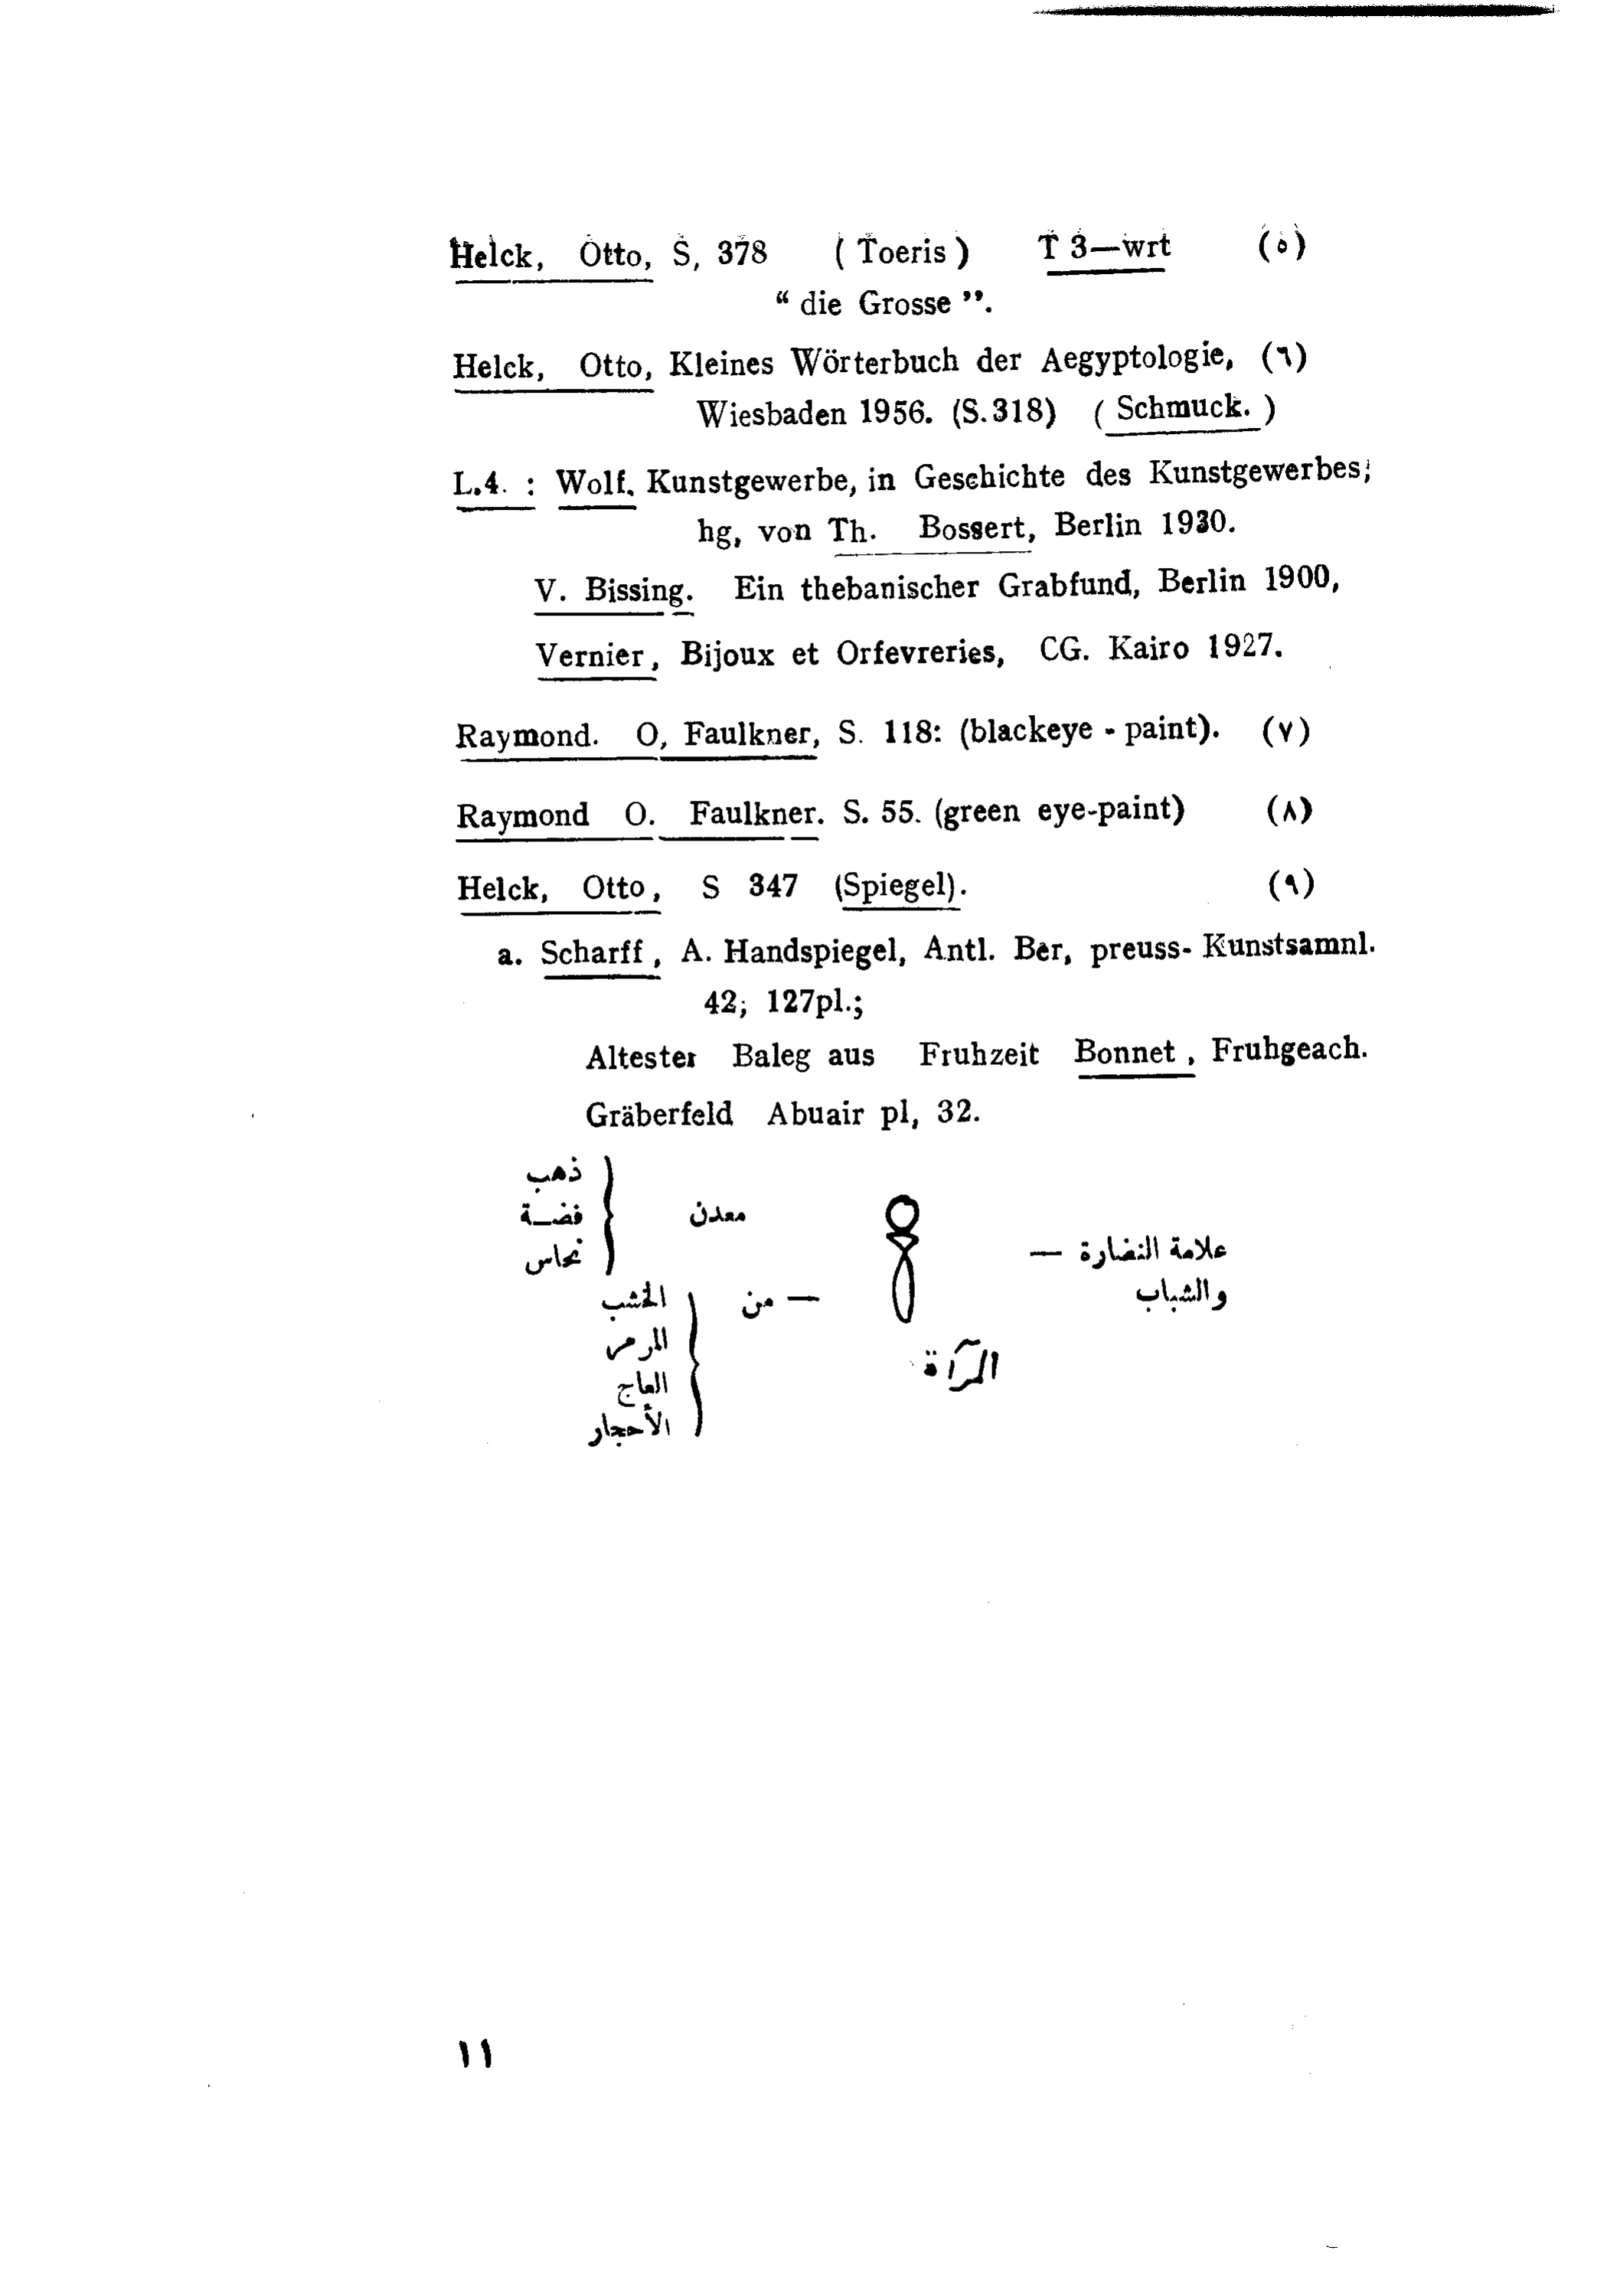 Helck, Otto, S, 378 ( Toeris ) T 3—wrt (٥)
“ die Grosse ”.
Helck, Otto, Kleines Wörterbuch der Aegyptologie, (٦)
Wiesbaden 1956. (S.318) ( Schmuck. )
L.4. : Wolf. Kunstgewerbe, in Geschichte des Kunstgewerbes;
hg, von Th. Bossert, Berlin 1930.
V. Bissing. Ein thebanischer Grabfund, Berlin 1900,
Vernier, Bijoux et Orfevreries, CG. Kairo 1927.
Raymond. O, Faulkner, S. 118: (blackeye - paint). (٧)
Raymond O. Faulkner. S. 55. (green eye-paint) (٨)
Helck, Otto, S 347 (Spiegel). (٩)
a. Scharff, A. Handspiegel, Antl. Ber, preuss- Kunstsamnl.
42; 127pl.;
Altester Baleg aus Fruhzeit Bonnet, Fruhgeach.
Gräberfeld Abuair pl, 32.
علامة النضارة —
والشباب
المرآة
— من
معدن
ذهب
فضة
نحاس
الخشب
المرمر
العاج
الأحجار
١١